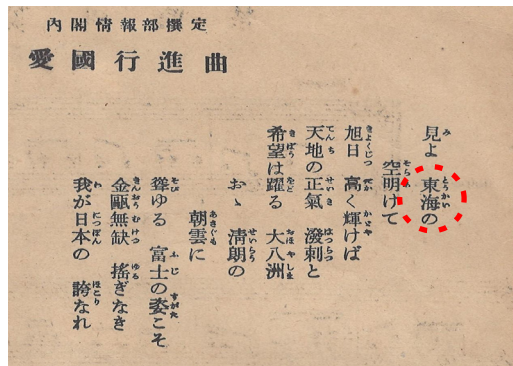 內閣情報部撰定
愛國行進曲
見よ 東海の
空明けて
旭日 高く輝けば
天地の正氣 潑剌と
希望は躍る 大八洲
おゝ 淸朗の
朝雲に
聳ゆる 富士の姿こそ
金甌無缺 搖ぎなき
我が日本の 誇なれ